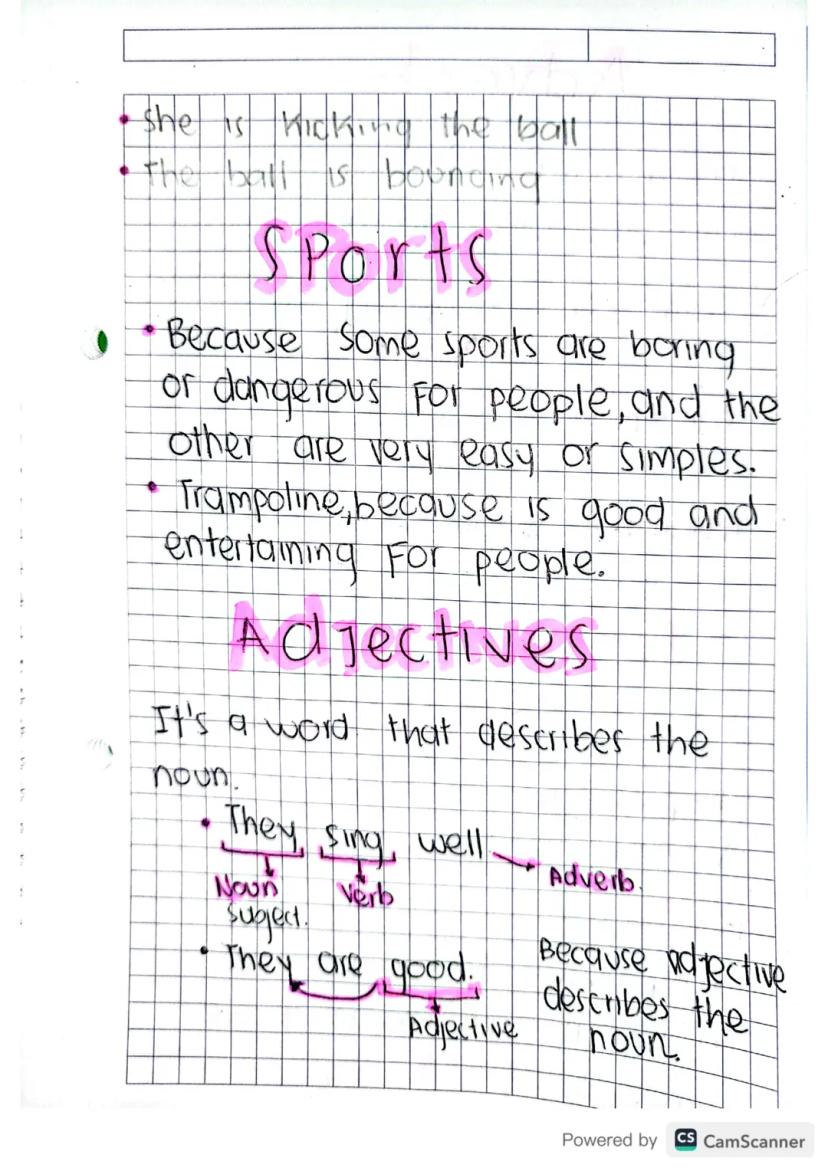 • She is kicking the ball
• The ball is bouncing
Sports
• Because some sports are boring
or dangerous for people, and the
other are very easy or simples.
• Trampoline, because is good and
entertaining for people.
Adjectives
It's a word that describes the
noun.
• They sing well → Adverb.
Noun Verb
sugject.
• They are good.
Adjective
Because adjective
describes the
noun.
Powered by CS CamScanner